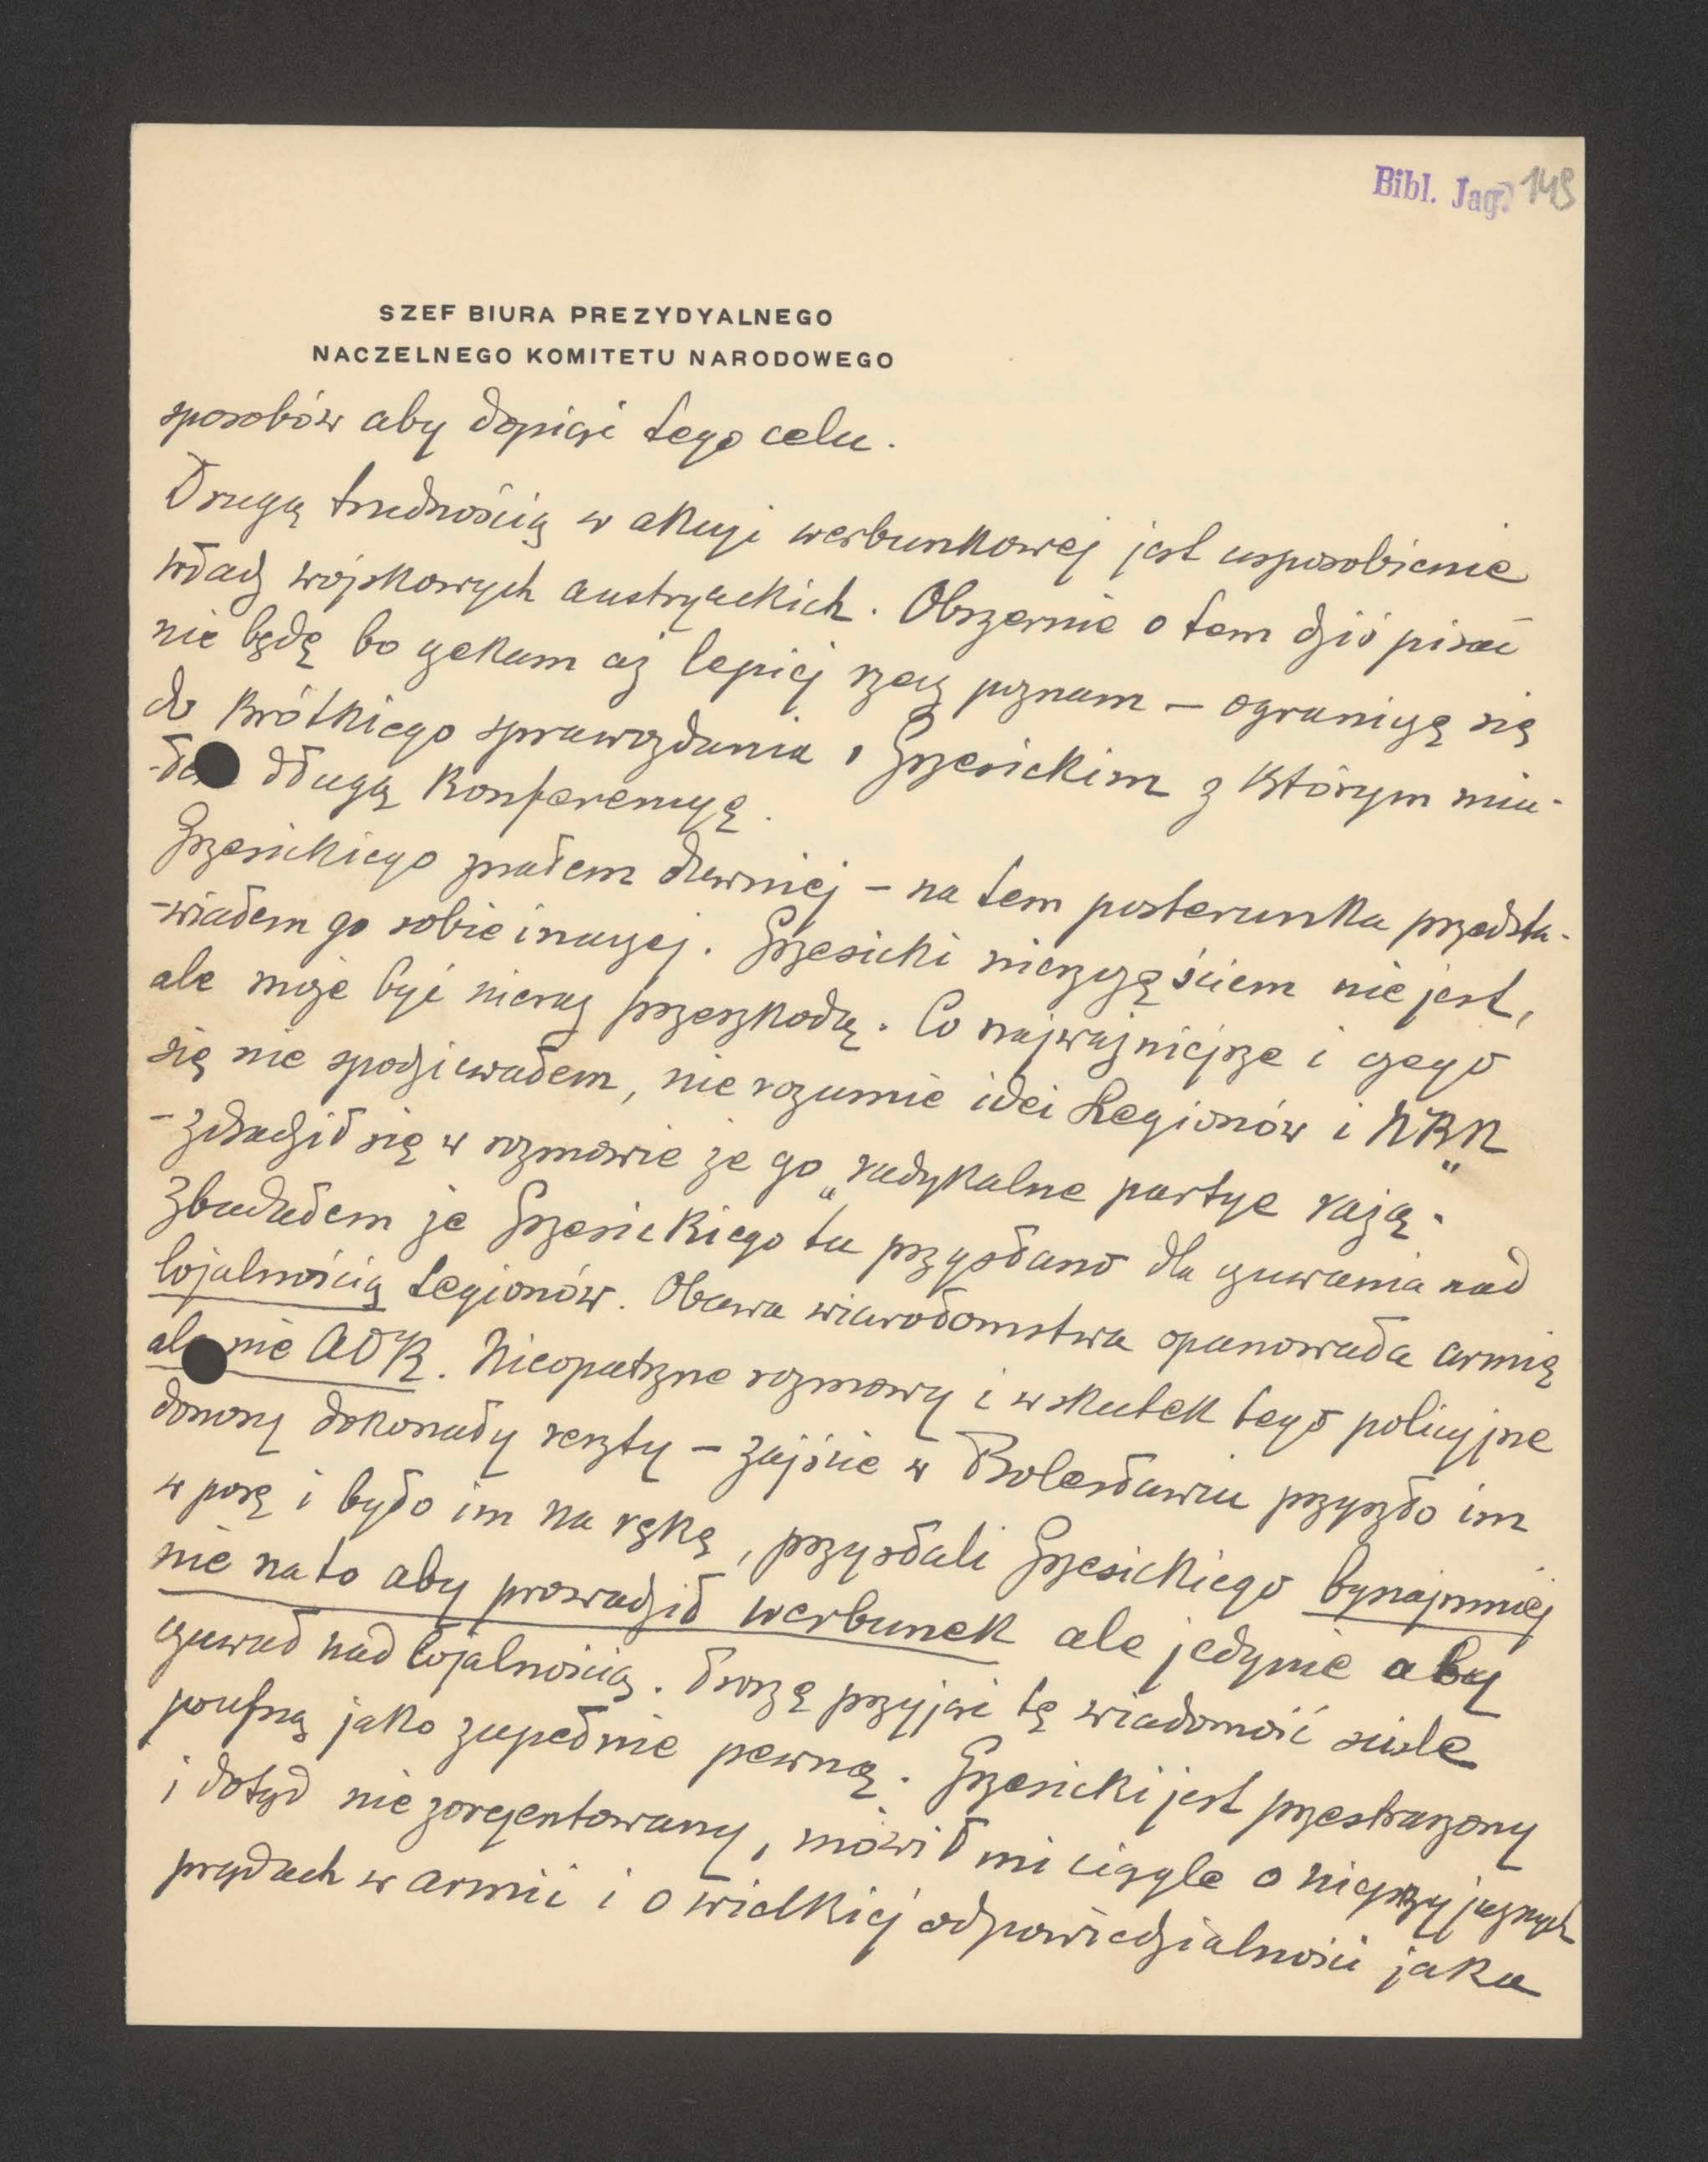 Bibl. Jag. 149
SZEF BIURA PREZYDYALNEGO
NACZELNEGO KOMITETU NARODOWEGO
sposobów aby dopiąć tego celu.
Drugą trudnością w akcyi werbunkowej jest usposobienie
władz wojskowych austryackich. Obszernie o tem dziś pisać
nie będę bo czekam aż lepiej rzecz poznam – ograniczę się
do krótkiego sprawozdania o Grzesickim z którym mia-
-łem długą konferencyę.
Grzesickiego znałem dawniej – na tem posterunku przedsta-
-wiałem go sobie inaczej. Grzesicki nieszczęściem nie jest,
ale może być nieraz przeszkodą. Co najważniejsze i czego
się nie spodziewałem, nie rozumie idei Legionów i NKN
– zdradził się w rozmowie że go „radykalne partye rażą".
Zbadałem że Grzesickiego tu przysłano dla czuwania nad
lojalnością Legionów. Obawa wiarołomstwa opanowała armię
ale nie AOK. Nieopatrzne rozmowy i wskutek tego policyjne
donosy dokonały reszty – zajście w Bolesławiu przyszło im
w porę i było im na rękę, przysłali Grzesickiego bynajmniej
nie na to aby prowadził werbunek ale jedynie aby
czuwał nad lojalnością. Proszę przyjąć tę wiadomość ściśle
poufną jako zupełnie pewną. Grzesicki jest przestraszony
i dotąd nie zoryentowany, mówił mi ciągle o nieprzyjaznych
prądach w armii i o wielkiej odpowiedzialności jaka